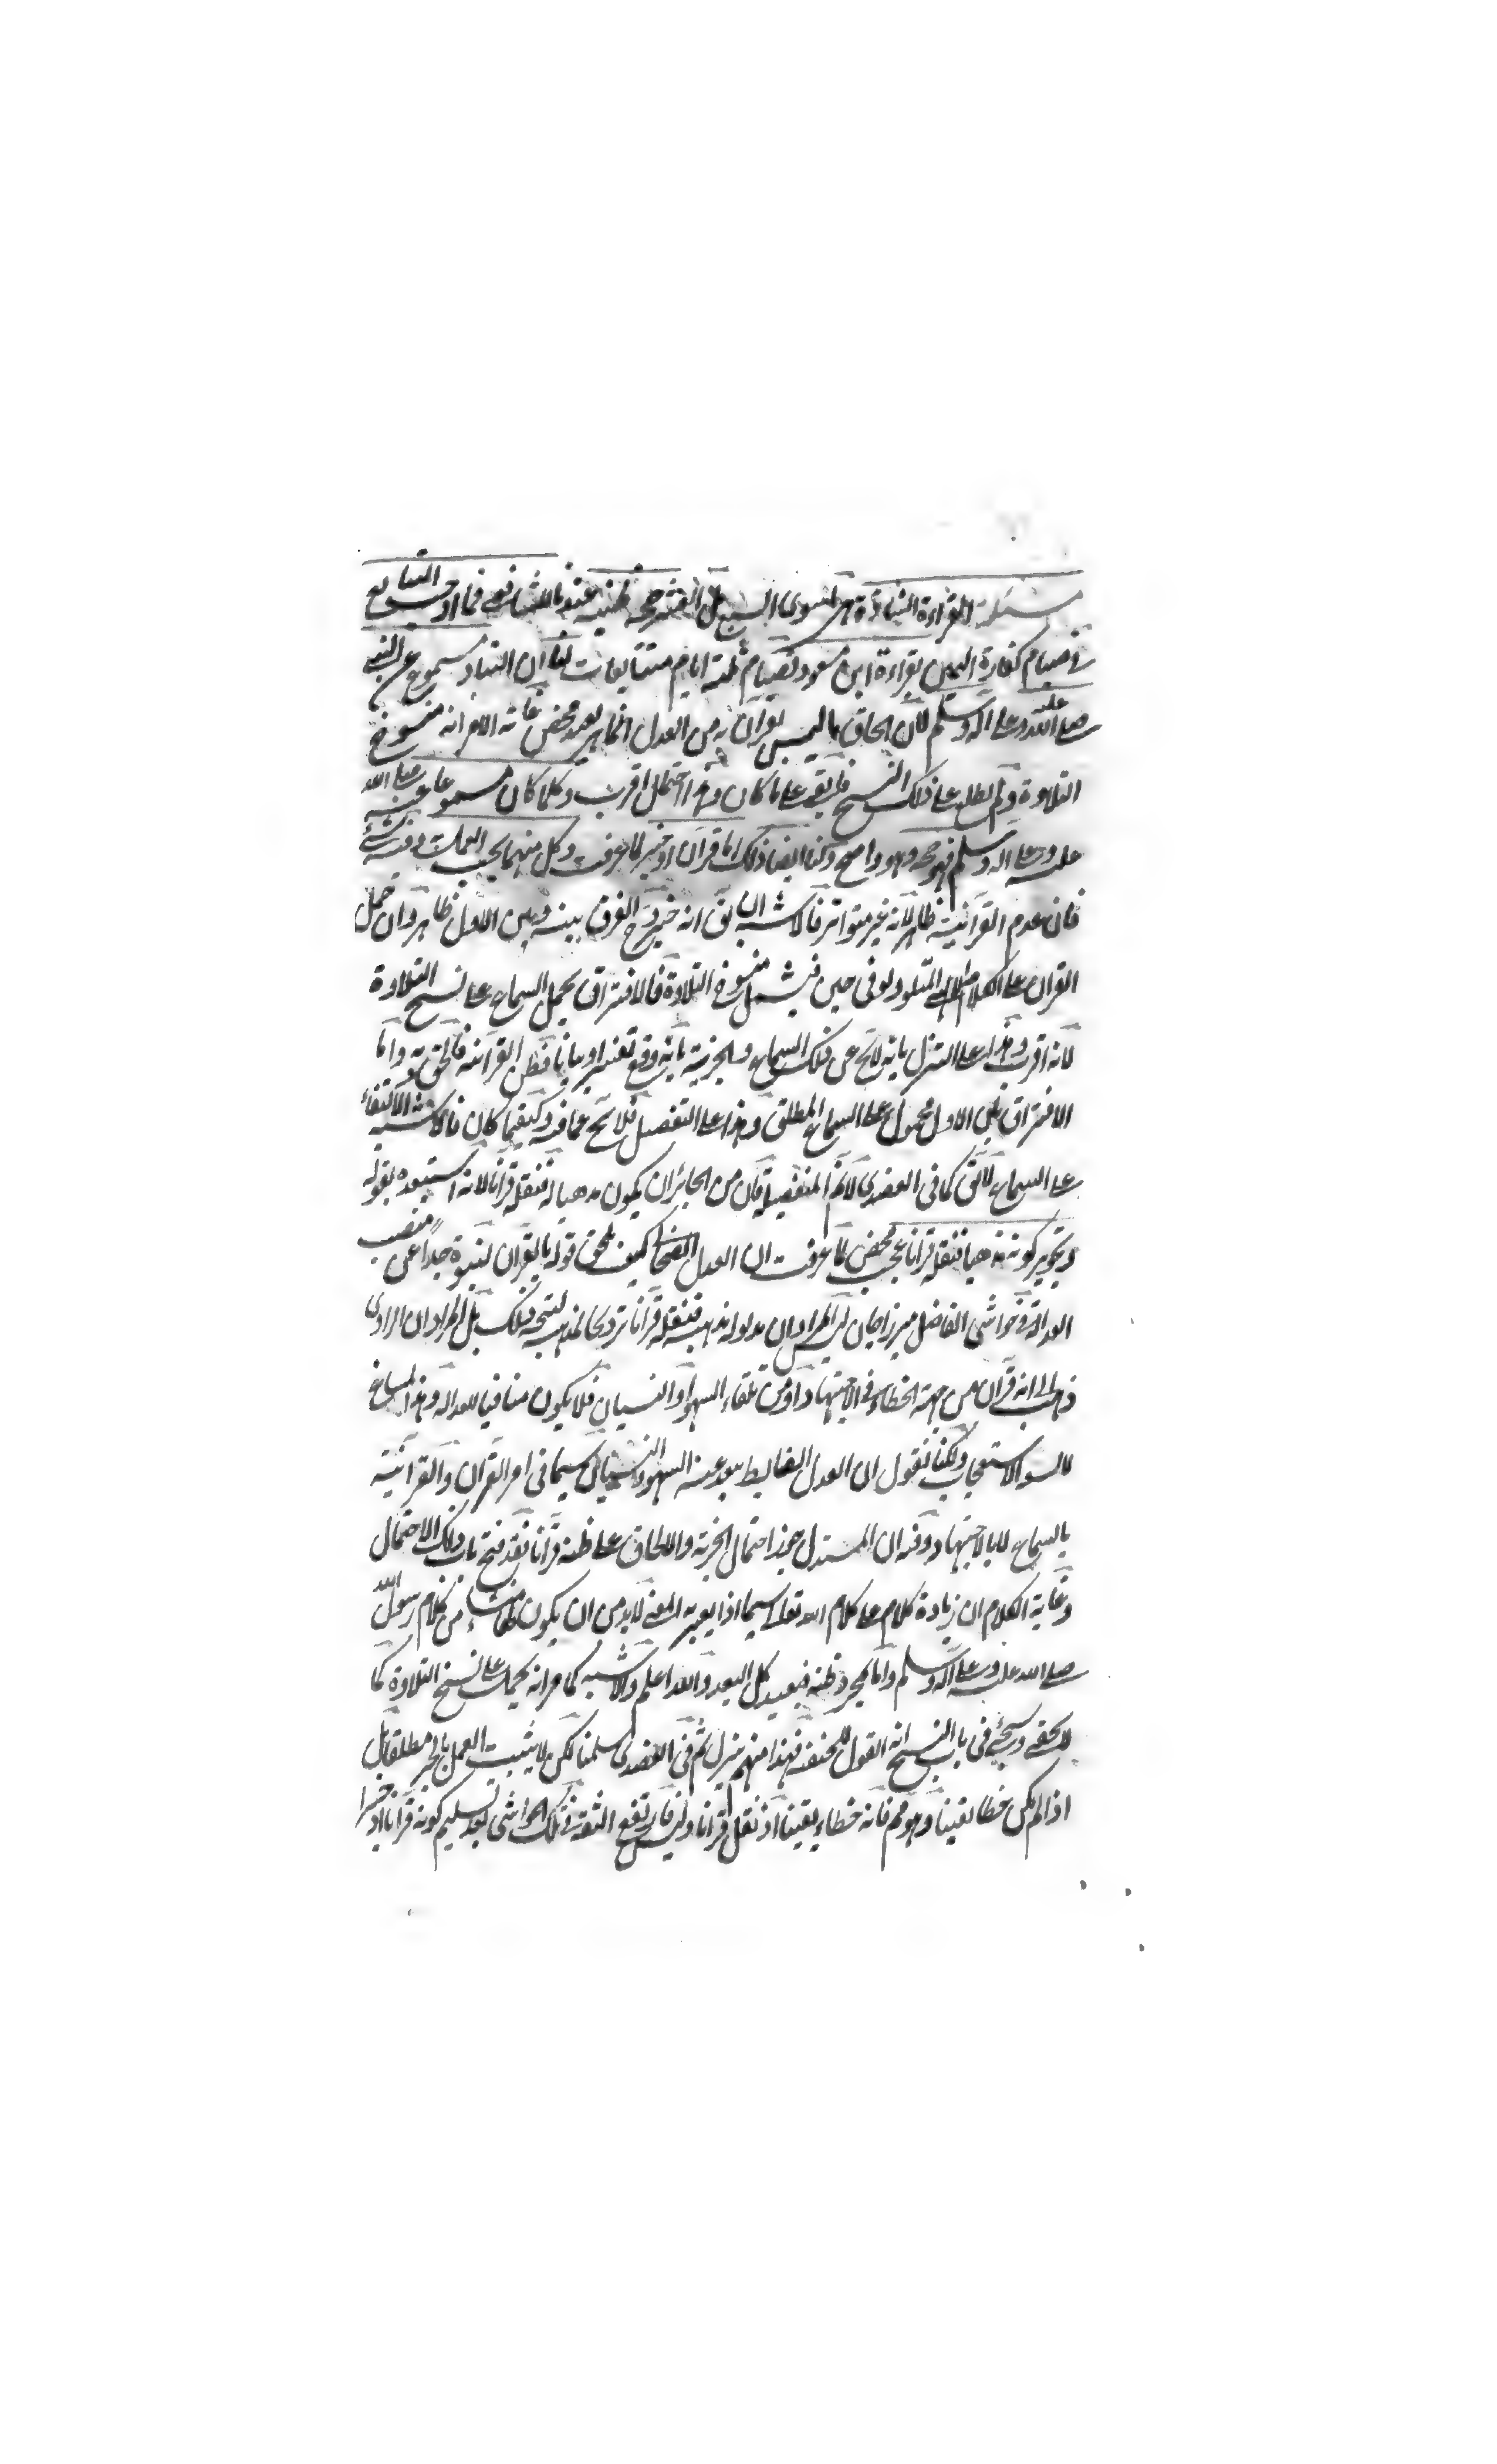 مسئلة القراءة الشاذة وهي ما سوى السبع بل العشر حجة ظنية عندنا للشافعي فما اوجب التتابع
في صيام كفارة اليمين بقراءة ابن مسعود فصيام ثلثة ايام متتابعات لنا ان الشاذ مسموع عن النبي
صلى الله عليه وعلى اله وسلم لان الحاق ما ليس بقرآن به من العدل الماهر بعيد محض غاية الامر انه منسوخ
التلاوة ولم يطلع على ذلك النسخ فبقي على ما كان وهذا احتمال اقرب وكلما كان مسموعا عنه صلى الله
عليه وعلى اله وسلم فهو حجة وهو واضح ولنا ايضا ذلك اما قرآن او خبر لما عرفت وكل منهما يجب العمل به وفيه شيء
فان عدم القرآنية ظاهر لانه غير متواتر فالاشبه ان يق انه خبر وح الفرق بينه وبين الاول ظاهر وان حمل
القرآن على الكلام الالهي المتلو ولو في حين فيشمل منسوخ التلاوة فالافتراق بحمل السماع على نسخ التلاوة
لانه اقرب وهذا على التنزل بانه لا يخ عن ذلك السماع والخبرية بانه وقع تفسيرا وبيانا فظن القرآنية فالحق به واما
الافتراق بان الاول محمول على السماع المطلق وهذا على التفصيل فلا يخ عما فيه وكيفما كان فالاشبه الاكتفاء
على السماع لا يق كما في العضدي لا نم المنفصلة فان من الجائز ان يكون مذهبا له فنقله قرآنا لانه استبعده بقوله
وتجويز كونه مذهبا فنقله قرآنا عجب محض لما عرفت ان العدل الضابط كيف يلحق قوله بالقرآن لنبوه جدا عن منصب
العدالة وفي حواشي الفاضل ميرزا جان ليس المراد ان مدلوله مذهبه فنقله قرآنا ترويجا لمذهبه ليتجه ذلك بل المراد ان الراوي
ذهب الى انه قرآن من جهة الخطاء في الاجتهاد او من تلقاء السهو او النسيان فلا يكون منافيا للعدالة وهذا لا مساغ
للاستعجاب ولكنا نقول ان العدل الضابط يبعد عنه السهو والنسيان لا سيما في امر القرآن والقرآنية
بالسماع لا بالاجتهاد وفيه ان المستدل جوز احتمال الخبرية والالحاق على ظنه قرآنا فقد فتح باب ذلك الاحتمال
وغاية الكلام ان زيادة كلام على كلام الله تعالى لا سيما اذا يغير به المعنى لا بد من ان يكون لها منشاء من كلام رسول الله
صلى الله عليه وعلى اله وسلم واما بمجرد ظنه فبعيد كل البعد والله اعلم والاشبه كما مر انه يحمل على نسخ التلاوة كما
لا يخفى وسيجئ في باب النسخ انه القول للحنفية فهذا منهم تنزل ثم في العضدي سلمنا لكن لا يثبت العمل بالخبر مطلقا بل
اذا لم يكن خطأ يقينا وهو مم فانه خطاء يقينا اذ نقل قرآنا وليس فارتفع الثقة وفي تلك الحواشي بعد تسليم كونه قرآنا او خبرا